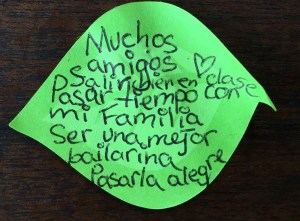 Muchos
amigos
Salir bien en clase
Pasar tiempo con
mi Familia
Ser una mejor
bailarina
Pasarla alegre